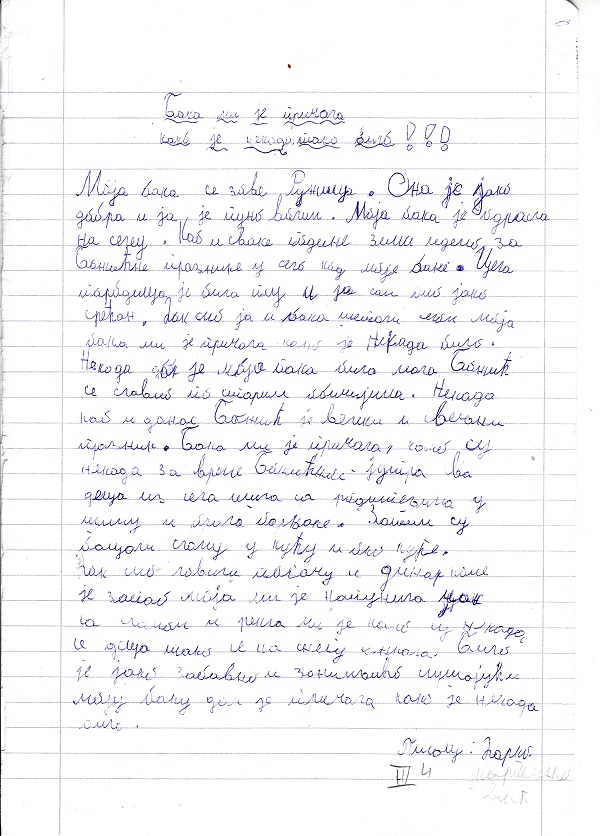 Бака ми је причала
како је некада било!!!
Моја бака се зове Ружица. Она је јако
добра и ја је пуно волим. Моја бака је одрасла
на селу. Као и сваке године зими идемо за
Божићне празнике у село код моје баке. Цела
породица је била ту и ја сам био јако
срећан. Док смо ја и бака шетали моја
бака ми је причала како је некада било.
Некада док је моја бака била мала Божић
се славио по старим обичајима. Некада
као и данас Божић је велики и свечани
празник. Бака ми је причала, како су
некада за време Божићног јутра сва
деца из села ишла са родитељима у
шуму и брала бадњаке. Затим су
бацали сламу у кућу и око куће.
Док смо ломили погачу и динар
је запао моја ми је
са сламом и рекла ми је како су некада
се деца тако и на снегу Било
је јако забавно и занимљиво слушајући
моју баку док је причала како је некада
било.
Писац: Марко.
III 4